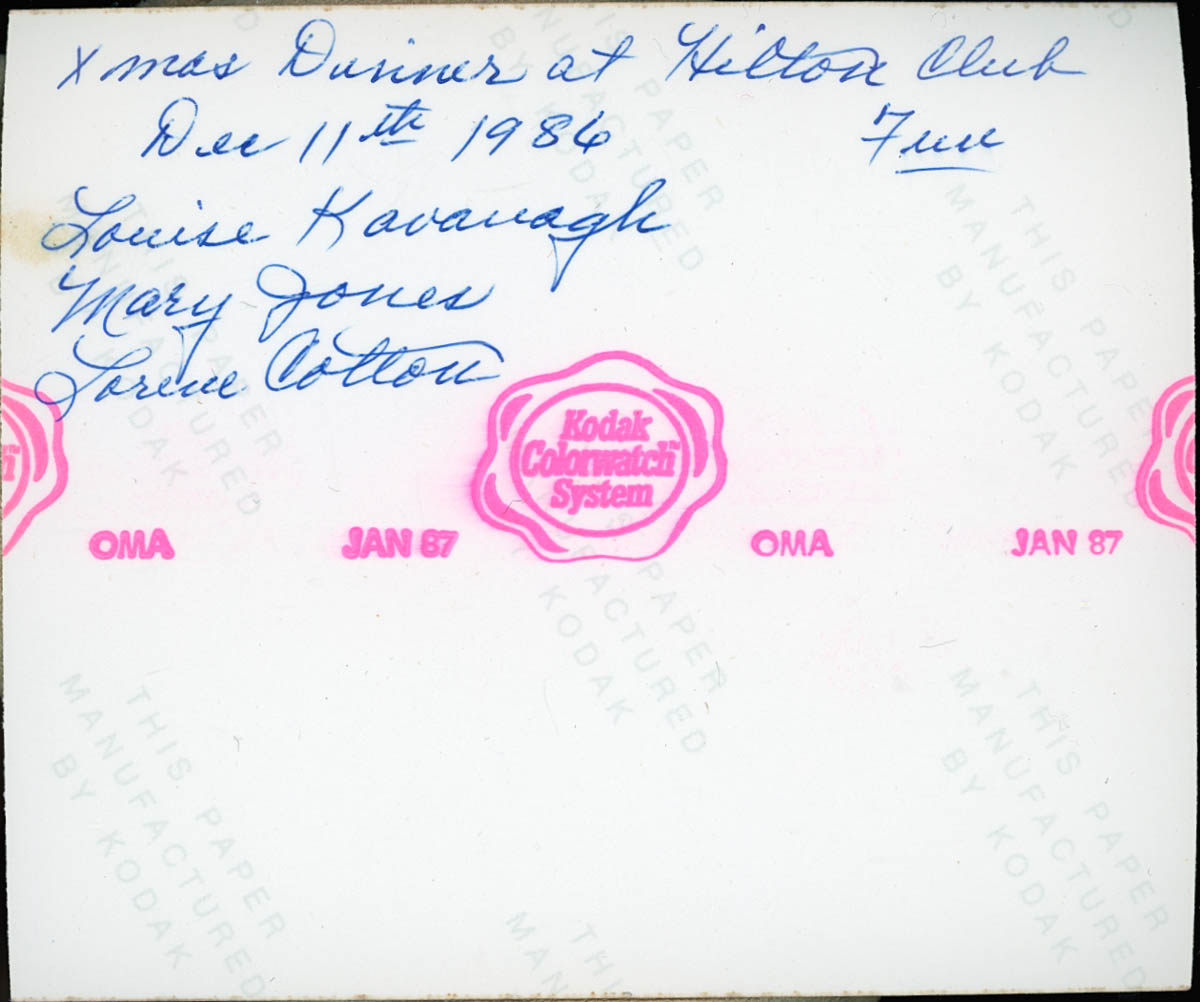 Xmas Dinner at Hilton Club
Dec 11th 1986 Fun
Louise Kavanagh
Mary Jones
Lorene Cotton
Kodak
Colorwatch™
System
OMA JAN 87 OMA JAN 87
THIS PAPER
MANUFACTURED
BY KODAK
THIS PAPER
MANUFACTURED
BY KODAK
THIS PAPER
MANUFACTURED
BY KODAK
THIS PAPER
MANUFACTURED
BY KODAK
THIS PAPER
MANUFACTURED
BY KODAK
THIS PAPER
MANUFACTURED
BY KODAK